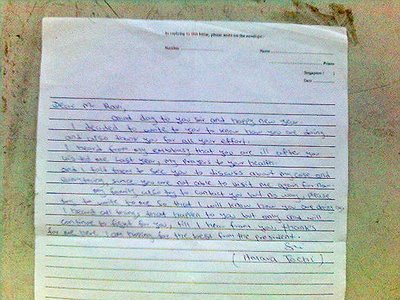 In replying to this letter, please write on the envelope:-
Number Name
Prison
Singapore (
Date
Dear Mr Ravi,
Good day to you sir and happy new year
I decided to write to you to know how you are doing
and also thank you for all your effort.
I heard from my embassy that you are ill after you
visited me last year, my prayers to your health
and I told them to see you to discuss about my case and
since you are not able to visit me again for now
my family use to contact you but no way, please
try to write to me so that I will know how you are doing
I heard all things that happen to you but only God will
continue to fight for you, till I hear from you, thanks
for me here I am hoping for the best from the president.